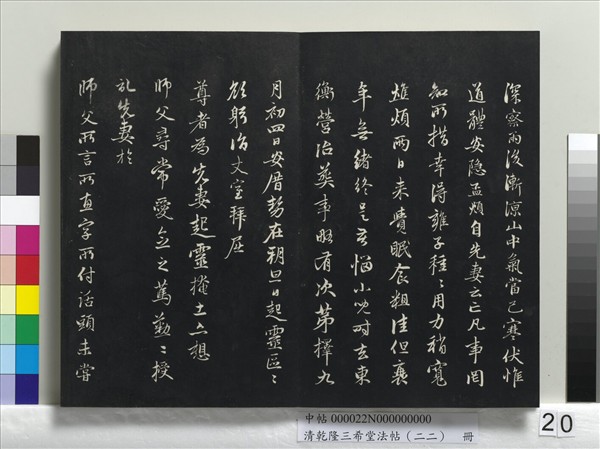 深察雨後漸涼山中氣當已寒伏惟
道體安隱孟頫自先妻云亡凡事罔
知所措幸得雍子種々用力稍寬
燋煩兩日來覺眠食粗佳但衰
年無緒終是苦惱小兒時去東
衡營治葬事略有次第擇九
月初四日安厝勢在朔旦日起靈區々
欲躬詣丈室拜屈
尊者為先妻起靈掩土亦想
師父尋常愛念之篤懃々授
記先妻於
師父所言所直字所付話頭未嘗
中帖 000022N000000000
清乾隆三希堂法帖（二二） 冊
20